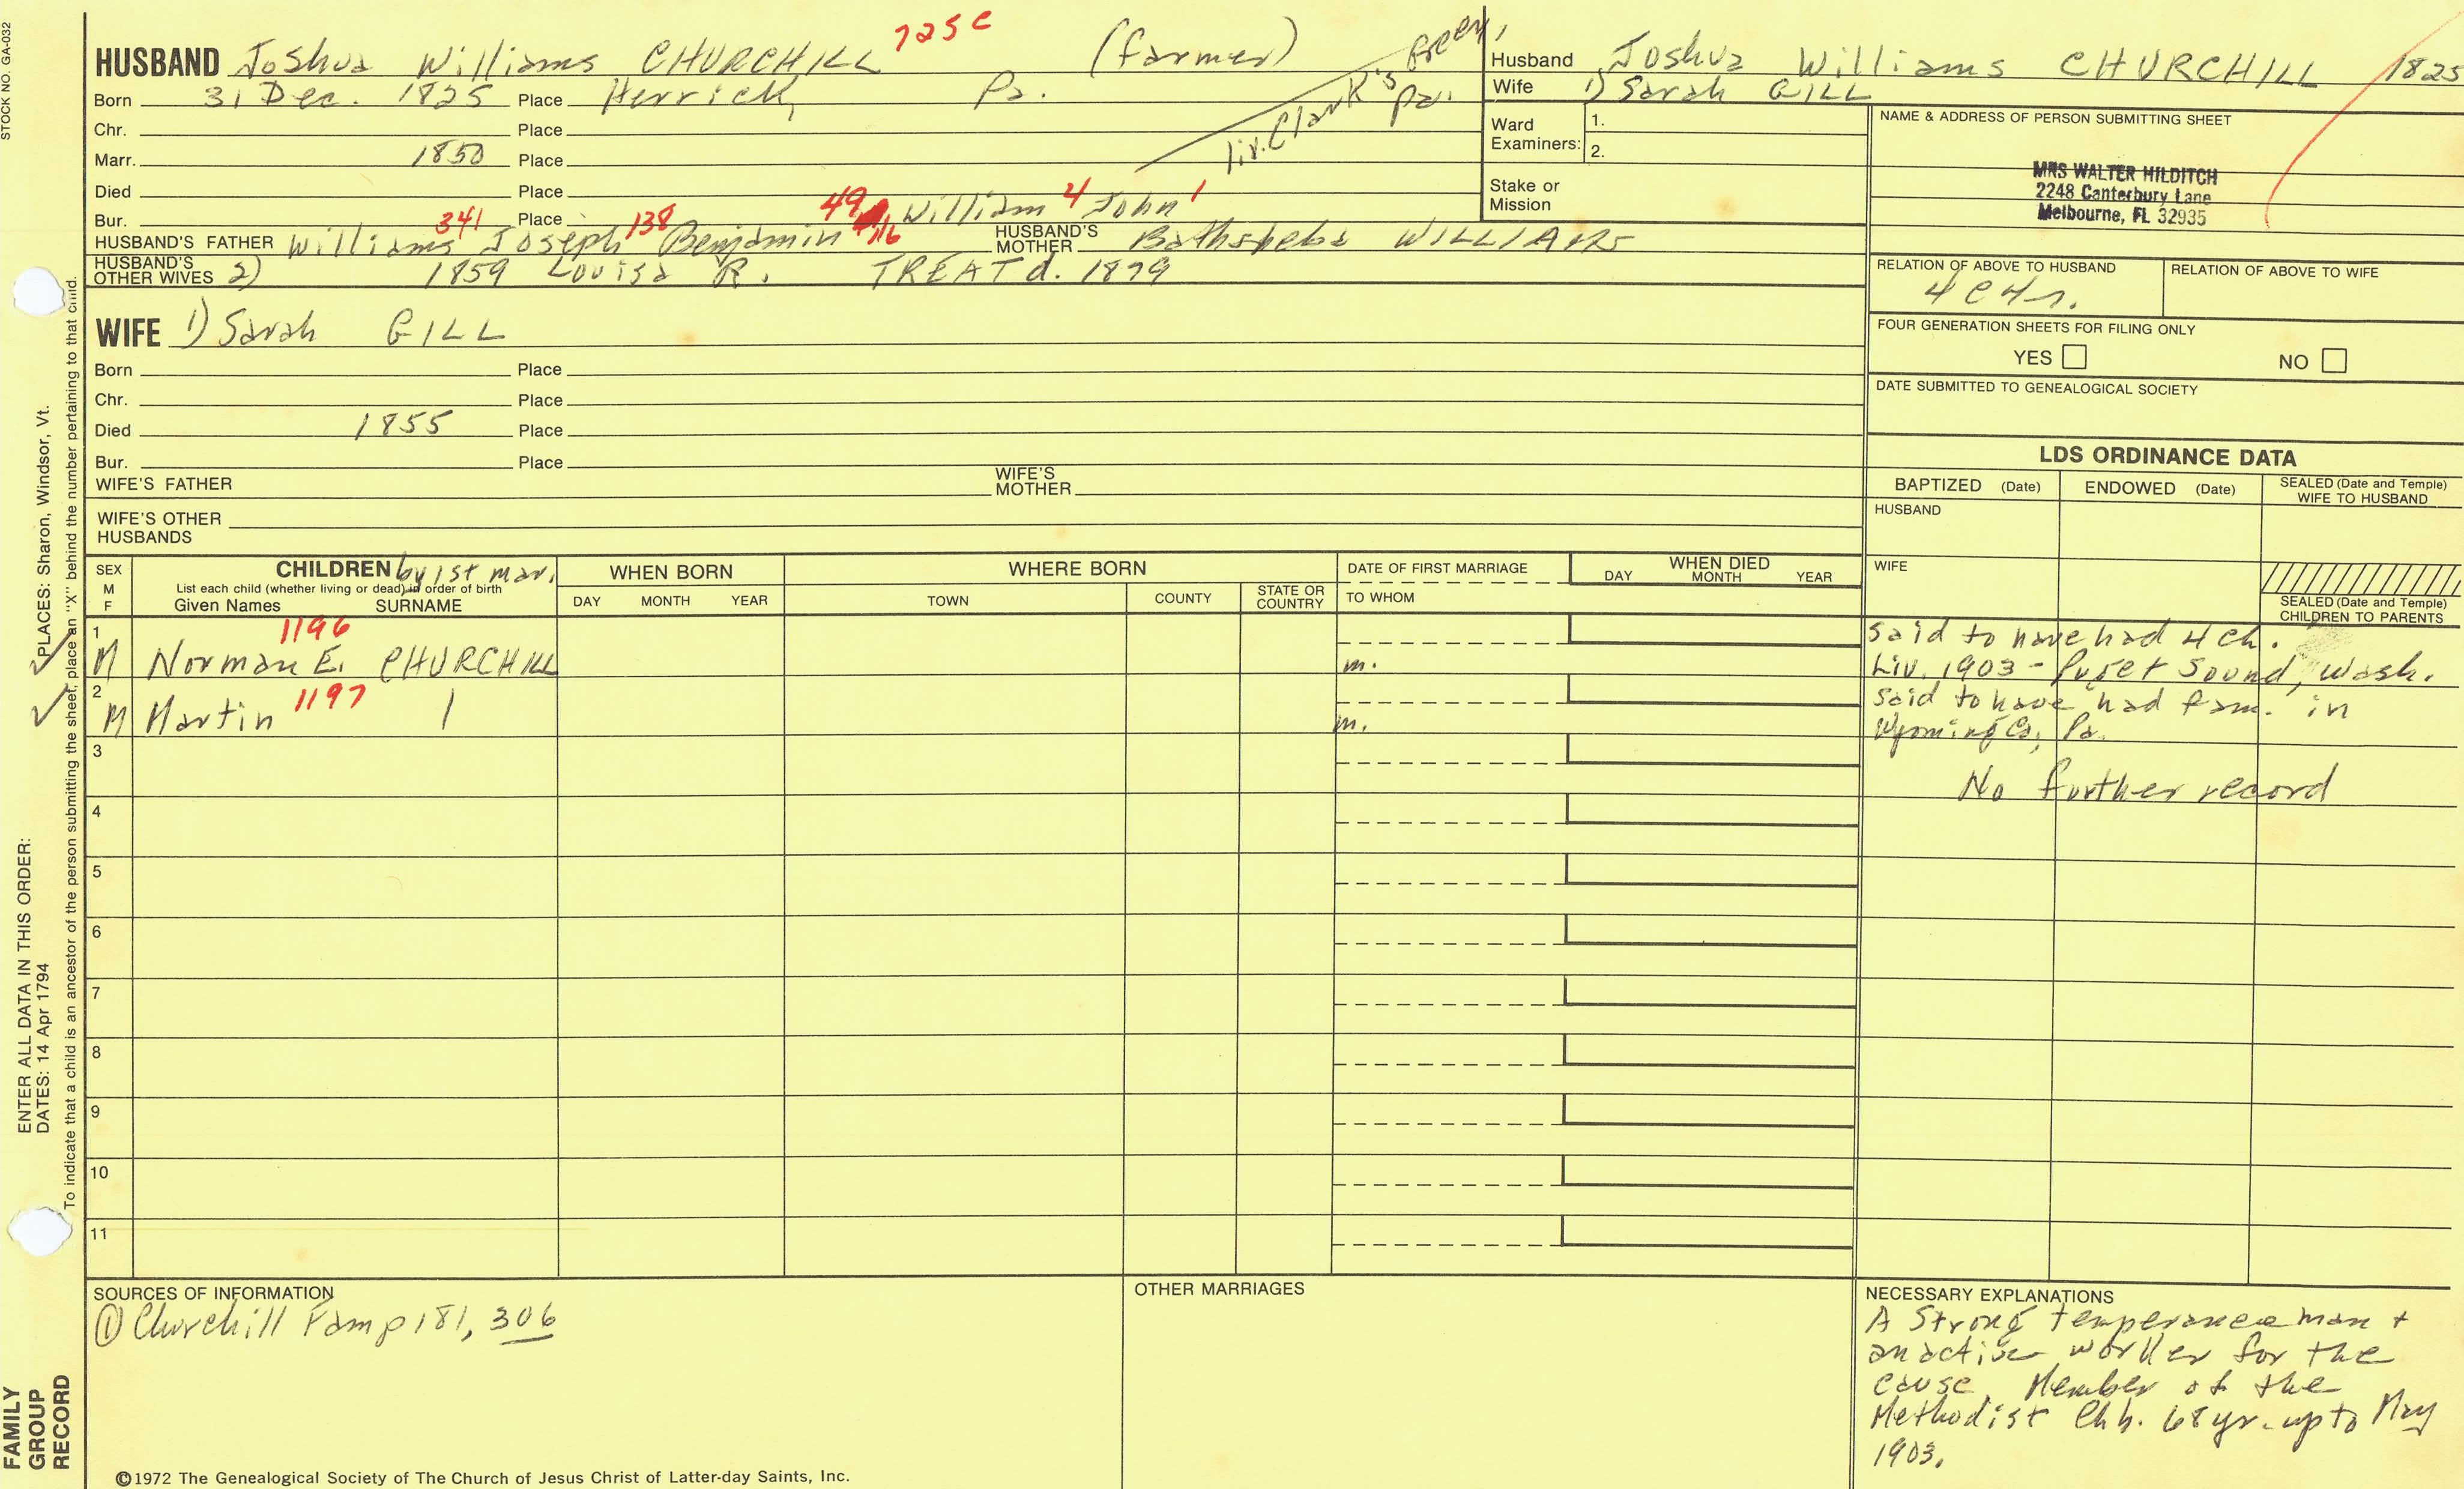 STOCK NO. GA-032
HUSBAND Joshua Williams CHURCHILL 725c (farmer)
Born 31 Dec. 1825 Place Herrick, Pa.
liv. Clark's Green, Pa.
Chr. Place
Marr. 1850 Place
Died Place
Bur. Place
HUSBAND'S FATHER Williams 341 Joseph 138 Benjamin 49 16 William 4 John 1 HUSBAND'S MOTHER Bathsheba WILLIAMS
HUSBAND'S OTHER WIVES 2) 1859 Louisa R. TREAT d. 1879
Husband Joshua Williams CHURCHILL 1825
Wife 1) Sarah GILL
Ward Examiners: 1.
2.
Stake or Mission
NAME & ADDRESS OF PERSON SUBMITTING SHEET
MRS WALTER HILDITCH
2248 Canterbury Lane
Melbourne, FL 32935
RELATION OF ABOVE TO HUSBAND RELATION OF ABOVE TO WIFE
4c4r.
FOUR GENERATION SHEETS FOR FILING ONLY
YES NO
DATE SUBMITTED TO GENEALOGICAL SOCIETY
WIFE 1) Sarah GILL
Born Place
Chr. Place
Died 1855 Place
Bur. Place
WIFE'S FATHER WIFE'S MOTHER
WIFE'S OTHER HUSBANDS
LDS ORDINANCE DATA
BAPTIZED (Date) ENDOWED (Date) SEALED (Date and Temple) WIFE TO HUSBAND
HUSBAND
WIFE
SEALED (Date and Temple) CHILDREN TO PARENTS
SEX M F
CHILDREN by 1st mar.
List each child (whether living or dead) in order of birth
Given Names SURNAME
WHEN BORN
DAY MONTH YEAR
WHERE BORN
TOWN COUNTY STATE OR COUNTRY
DATE OF FIRST MARRIAGE
TO WHOM
WHEN DIED
DAY MONTH YEAR
1 1196
M Norman E. CHURCHILL m.
said to have had 4 ch.
Liv. 1903 - Puget Sound, Wash.
2 1197
M Martin | m.
said to have had fam. in
Wyoming Co, Pa.
3
No further record
4
5
6
7
8
9
10
11
SOURCES OF INFORMATION
① Churchill Fam p 181, 306
OTHER MARRIAGES
NECESSARY EXPLANATIONS
A Strong temperance man +
an active worker for the
cause. Member of the
Methodist Chh. 68 yr. up to May
1903.
©1972 The Genealogical Society of The Church of Jesus Christ of Latter-day Saints, Inc.
ENTER ALL DATA IN THIS ORDER:
DATES: 14 Apr 1794 PLACES: Sharon, Windsor, Vt.
To indicate that a child is an ancestor of the person submitting the sheet, place an "X" behind the number pertaining to that child.
FAMILY
GROUP
RECORD